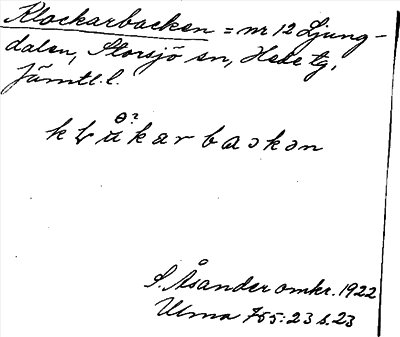 Klockarbacken = nr 12 Ljung-
dalen, Storsjö sn, Hede tg,
Jämtl. l.
S. Åsander omkr. 1922
Ulma 755:23 s. 23